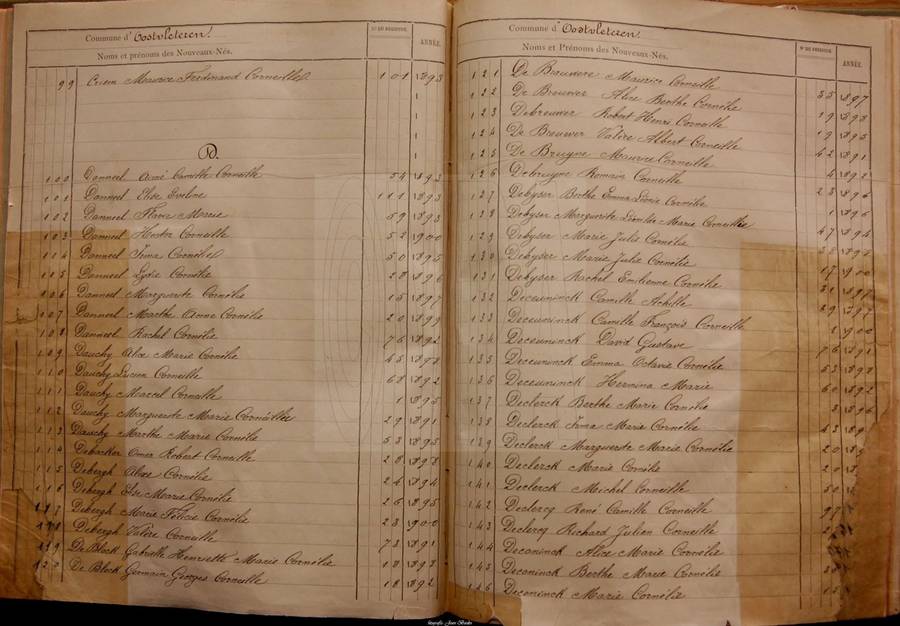 Commune d' Oostvleteren.
Noms et prénoms des Nouveaux-Nés.
N° DU REGISTRE
ANNÉE.
99 Maurice Ferdinand Corneille 101 1893
D.
100 Danneel Aimé Camille Corneille 54 1893
101 Danneel Elise Eveline 111 1893
102 Danneel Flavie Marie 59 1893
103 Danneel Hector Corneille 52 1900
104 Danneel Irma Cornélie 50 1895
105 Danneel Lydie Cornélie 28 1896
106 Danneel Marguerite Cornélie 15 1897
107 Danneel Marthe Cornélie 20 1899
108 Danneel Rachel Cornélie 76 1892
109 Dauchy Alice Marie Cornélie 45 1898
110 Dauchy Lucien Corneille 68 1892
111 Dauchy Marcel Corneille 1 1895
112 Dauchy Marguerite Marie Cornélie 29 1891
113 Dauchy Marthe Marie Cornélie 53 1895
114 Debacker Omer Robert Corneille 28 1898
115 Debergh Alice Cornélie 26 1894
116 Debergh Elise Marie Cornélie 26 1895
117 Debergh Marie Félicie Cornélie 23 1900
118 Debergh Valère Corneille 73 1891
119 De Block Gabrielle Henriette Marie Cornélie 18 1893
120 De Block Germain Georges Corneille 18 1892
Commune d' Oostvleteren.
Noms et Prénoms des Nouveaux-Nés.
N° DU REGISTRE
ANNÉE.
121 De Brauwere Maurice Corneille 35 1897
122 De Brouwer Alice Berthe Cornélie 13 1893
123 Debrouwer Robert Henri Corneille 19 1895
124 De Brouwer Valère Albert Corneille 42 1891
125 De Bruyne Maurice Corneille 4
126 Debruyne Romain Corneille 23 1896
127 Debyser Berthe Emma Léonie Cornélie 1 1896
128 Debyser Marguerite Léontie Marie Cornélie 47
129 Debyser Marie Julie Cornélie
130 Debyser Marie Julie Cornélie 17 1900
131 Debyser Rachel Emilienne Cornélie 31 1897
132 Deceuninck Camille Achille 29
133 Deceuninck Camille François Corneille 1 1900
134 Deceuninck David Gustave 76 1891
135 Deceuninck Emma Octavie Cornélie 53
136 Deceuninck Hermina Marie 60 1892
137 Declerck Berthe Marie Cornélie 3 1896
138 Declerck Irma Marie Cornélie 43
139 Declerck Marguerite Marie Cornélie 20
140 Declerck Marie Cornélie 20
141 Declerck Michel Corneille 50
142 Declercq René Camille Corneille
143 Declercq Richard Julien Corneille
144 Deconinck Alice Marie Cornélie
145 Deconinck Berthe Marie Cornélie
146 Deconinck Marie Cornélie